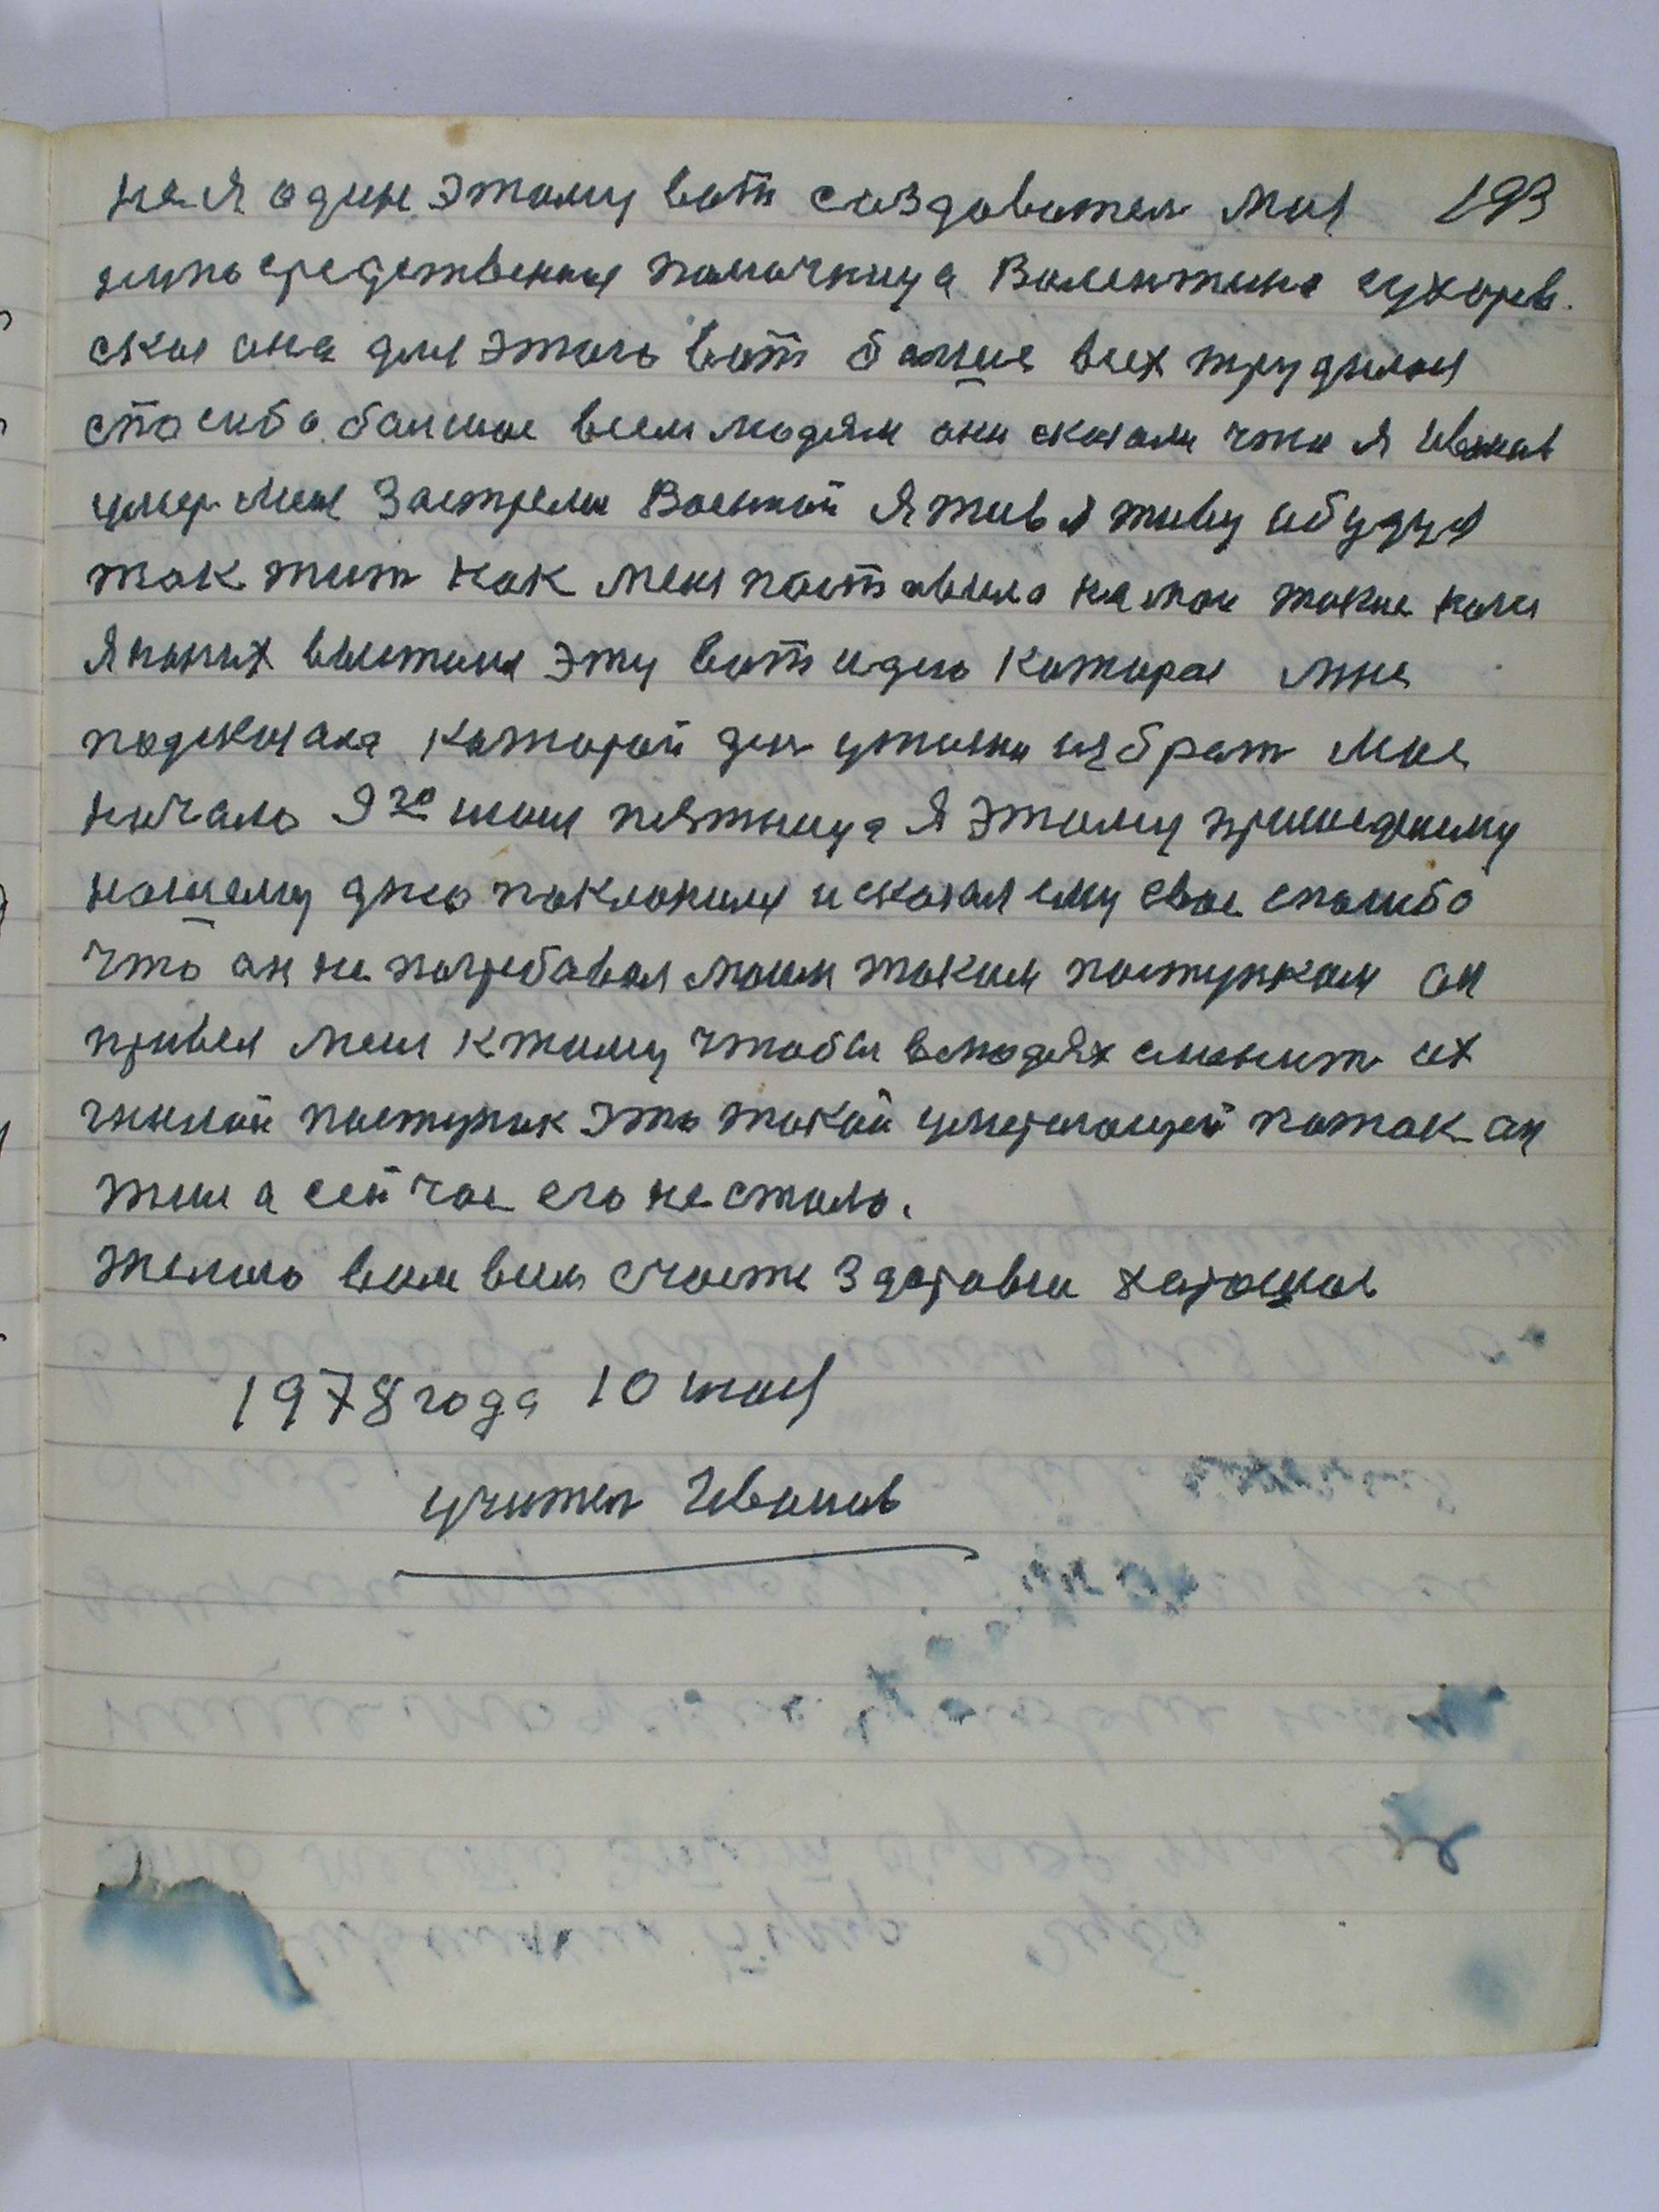 не я один этому вот создавател моя 193
непосредственая помочница Валентина сухорев-
ская она для этого вот больше всех трудилася
спосибо болшое всем людям они сказали что я Иванов
умер меня застрелил Военной я жив я живу и буду я
так жит как меня поставила на мои такие ноги
я на них выстоял эту вот идею которая мне
подсказала которой ден утиши избрат мне
начало 9го июня пятница я этому пришедшему
нашему дню поклонился и сказал ему свое спосибо
что он не потребовал моим таким поступкам он
привел меня к тому чтобы в людях сменит их
гнилой поступок это такой умирающей поток он
жил а сейчас его не стало.
Желаю вам всем счастя здоровия хорошая
1978 года 10 июня
учител Иванов